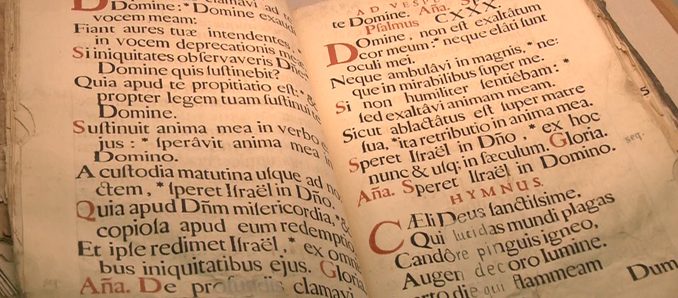 De clamavi ad te
Domine: * Domine exaudi
vocem meam:
Fiant aures tuæ intendentes, *
in vocem deprecationis meæ
Si iniquitates observaveris
Domine quis sustinebit?
Quia apud te propitiatio est: * &
propter legem tuam sustinui te
Domine.
Sustinuit anima mea in verbo e
jus: * sperâvit anima mea
in Domino.
A custodia matutina usque ad no
ctem, * speret Israël in Dño.
Quia apud Dñm misericordia, * &
copiosa apud eum redemptio
Et ipse redimet Israël, * ex omni
bus iniquitatibus ejus. Gloria
Aña. De profundis clamavi
AD VESP
te Domine. Aña. S
Psalmus CXXX.
Domine, non est exaltâtum
cor meum: * neque elâti sunt
oculi mei.
Neque ambulâvi in magnis, * ne:
que in mirabilibus super me.
Si non humiliter sentiêbam: *
sed exaltâvi animam meam.
Sicut ablactâtus est super matre
sua, * ita retributio in anima mea.
Speret Israël in Dño, * ex hoc
nunc & usq; in sæculum. Gloria.
seq.
Aña. Speret Israël in Domino.
HYMNUS.
CÆli Deus sanctissime.
Qui lucidas mundi plagas
Candôre pinguis igneo,
Augen decoro lumine.
die qui flammeam
Dum
5